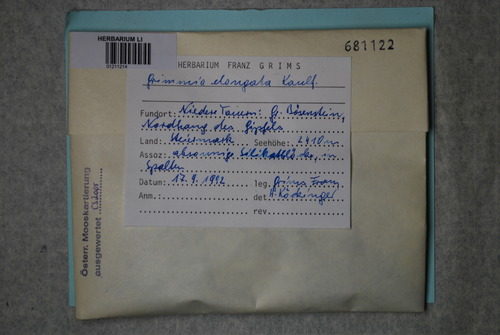 HERBARIUM LI
01211214
681122
HERBARIUM FRANZ GRIMS
Grimmia elongata Kaulf.
Fundort: Niedere Tauern: Gr. Bösenstein,
Nordhang des Gipfels
Land: Steiermark Seehöhe: 2410m
Assoz: absonnige Silikatblöcke, in
Spalten
Datum: 17.9.1992 leg. Grims Franz
Anm.: det H. Köckinger
rev.
Österr. Mooskartierung
ausgewertet